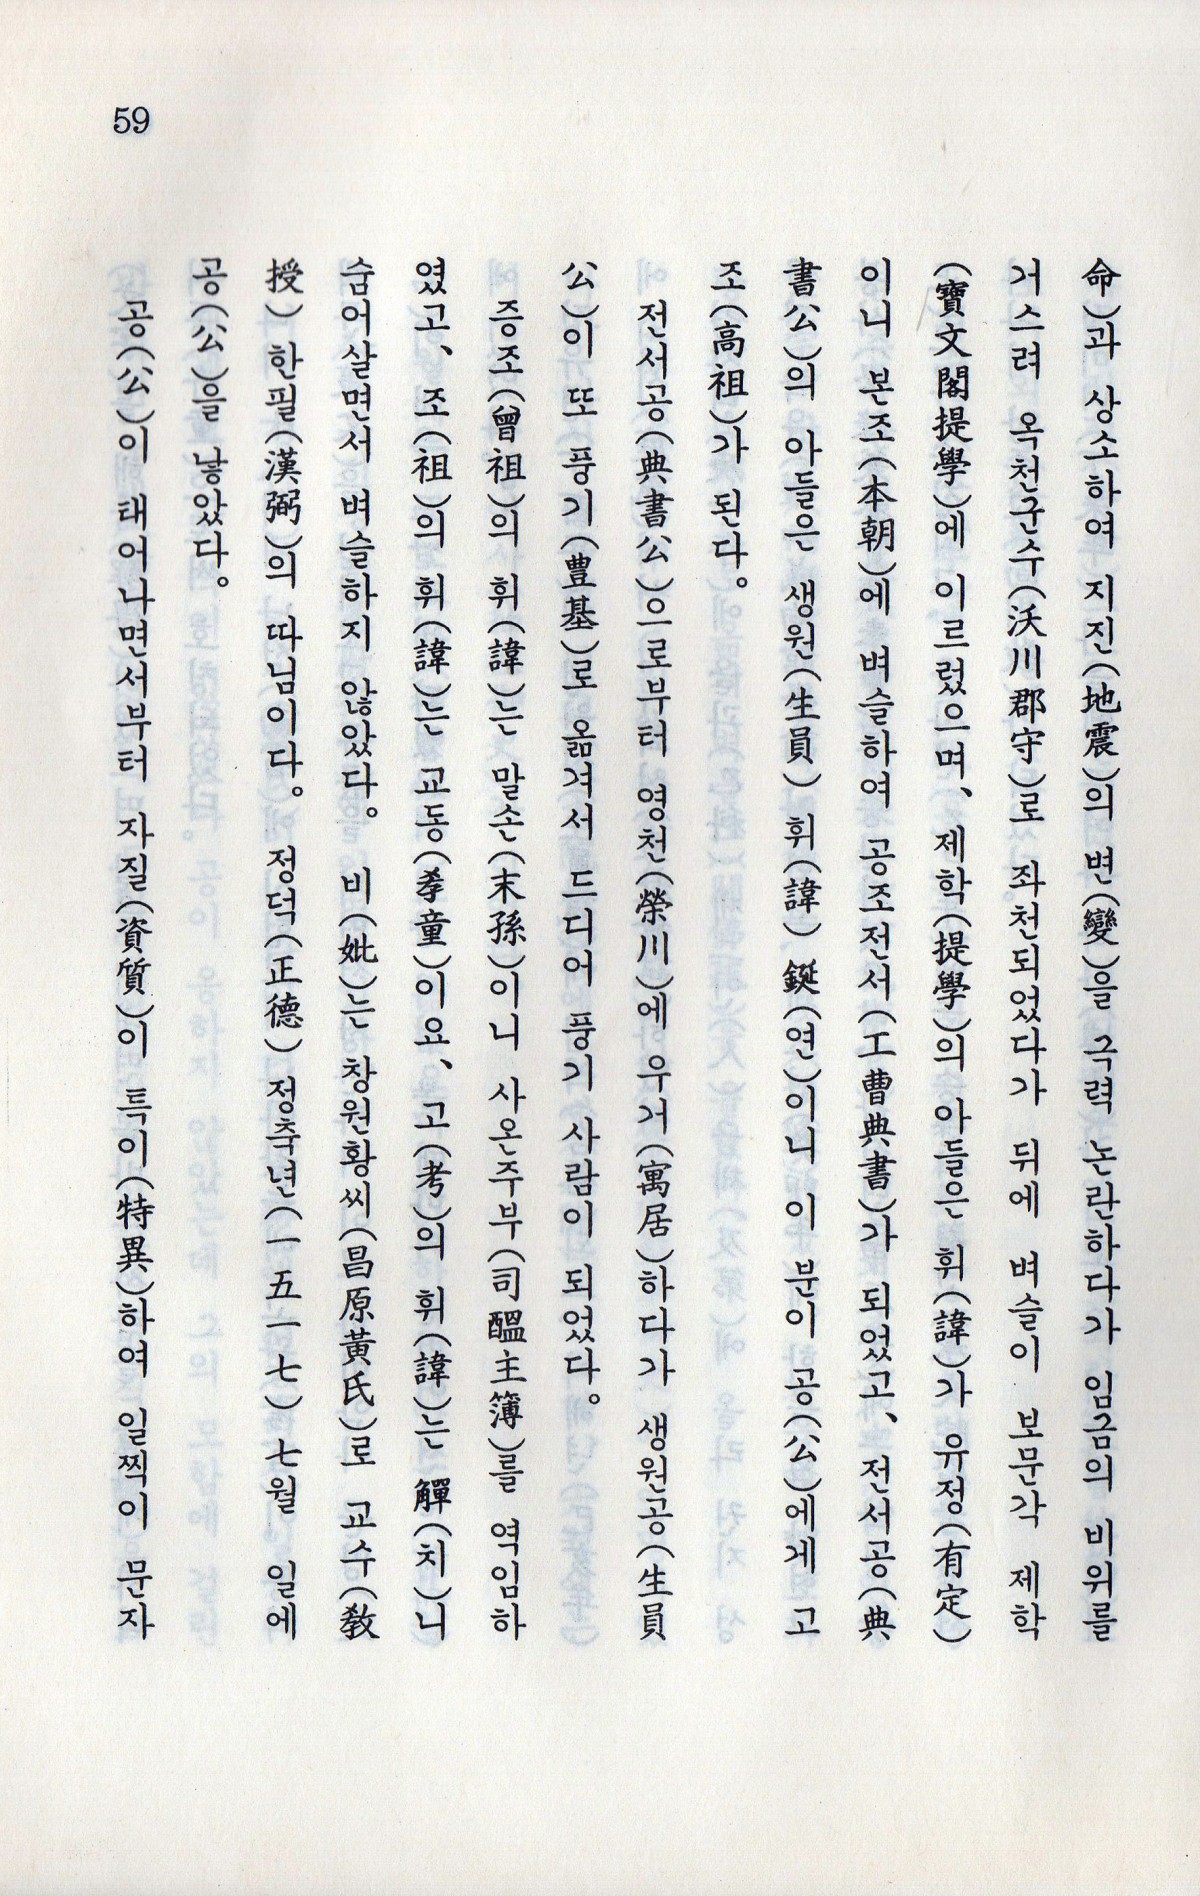 命)과 상소하여 지진(地震)의 변(變)을 극력 논란하다가 임금의 비위를
거스려 옥천군수(沃川郡守)로 좌천되었다가 뒤에 벼슬이 보문각 제학
(寶文閣提學)에 이르렀으며、제학(提學)의 아들은 휘(諱)가 유정(有定)
이니 본조(本朝)에 벼슬하여 공조전서(工曹典書)가 되었고、전서공(典
書公)의 아들은 생원(生員) 휘(諱) 鋋(연)이니 이 분이 공(公)에게 고
조(高祖)가 된다。
전서공(典書公)으로부터 영천(榮川)에 우거(寓居)하다가 생원공(生員
公)이 또 풍기(豊基)로 옮겨서 드디어 풍기 사람이 되었다。
증조(曾祖)의 휘(諱)는 말손(末孫)이니 사온주부(司醞主簿)를 역임하
였고、조(祖)의 휘(諱)는 교동(孝童)이요、고(考)의 휘(諱)는 觶(치)니
숨어살면서 벼슬하지 않았다。 비(妣)는 창원황씨(昌原黃氏)로 교수(敎
授) 한필(漢弼)의 따님이다。 정덕(正德) 정축년(一五一七) 七월 일에
공(公)을 낳았다。
공(公)이 태어나면서부터 자질(資質)이 특이(特異)하여 일찍이 문자
59